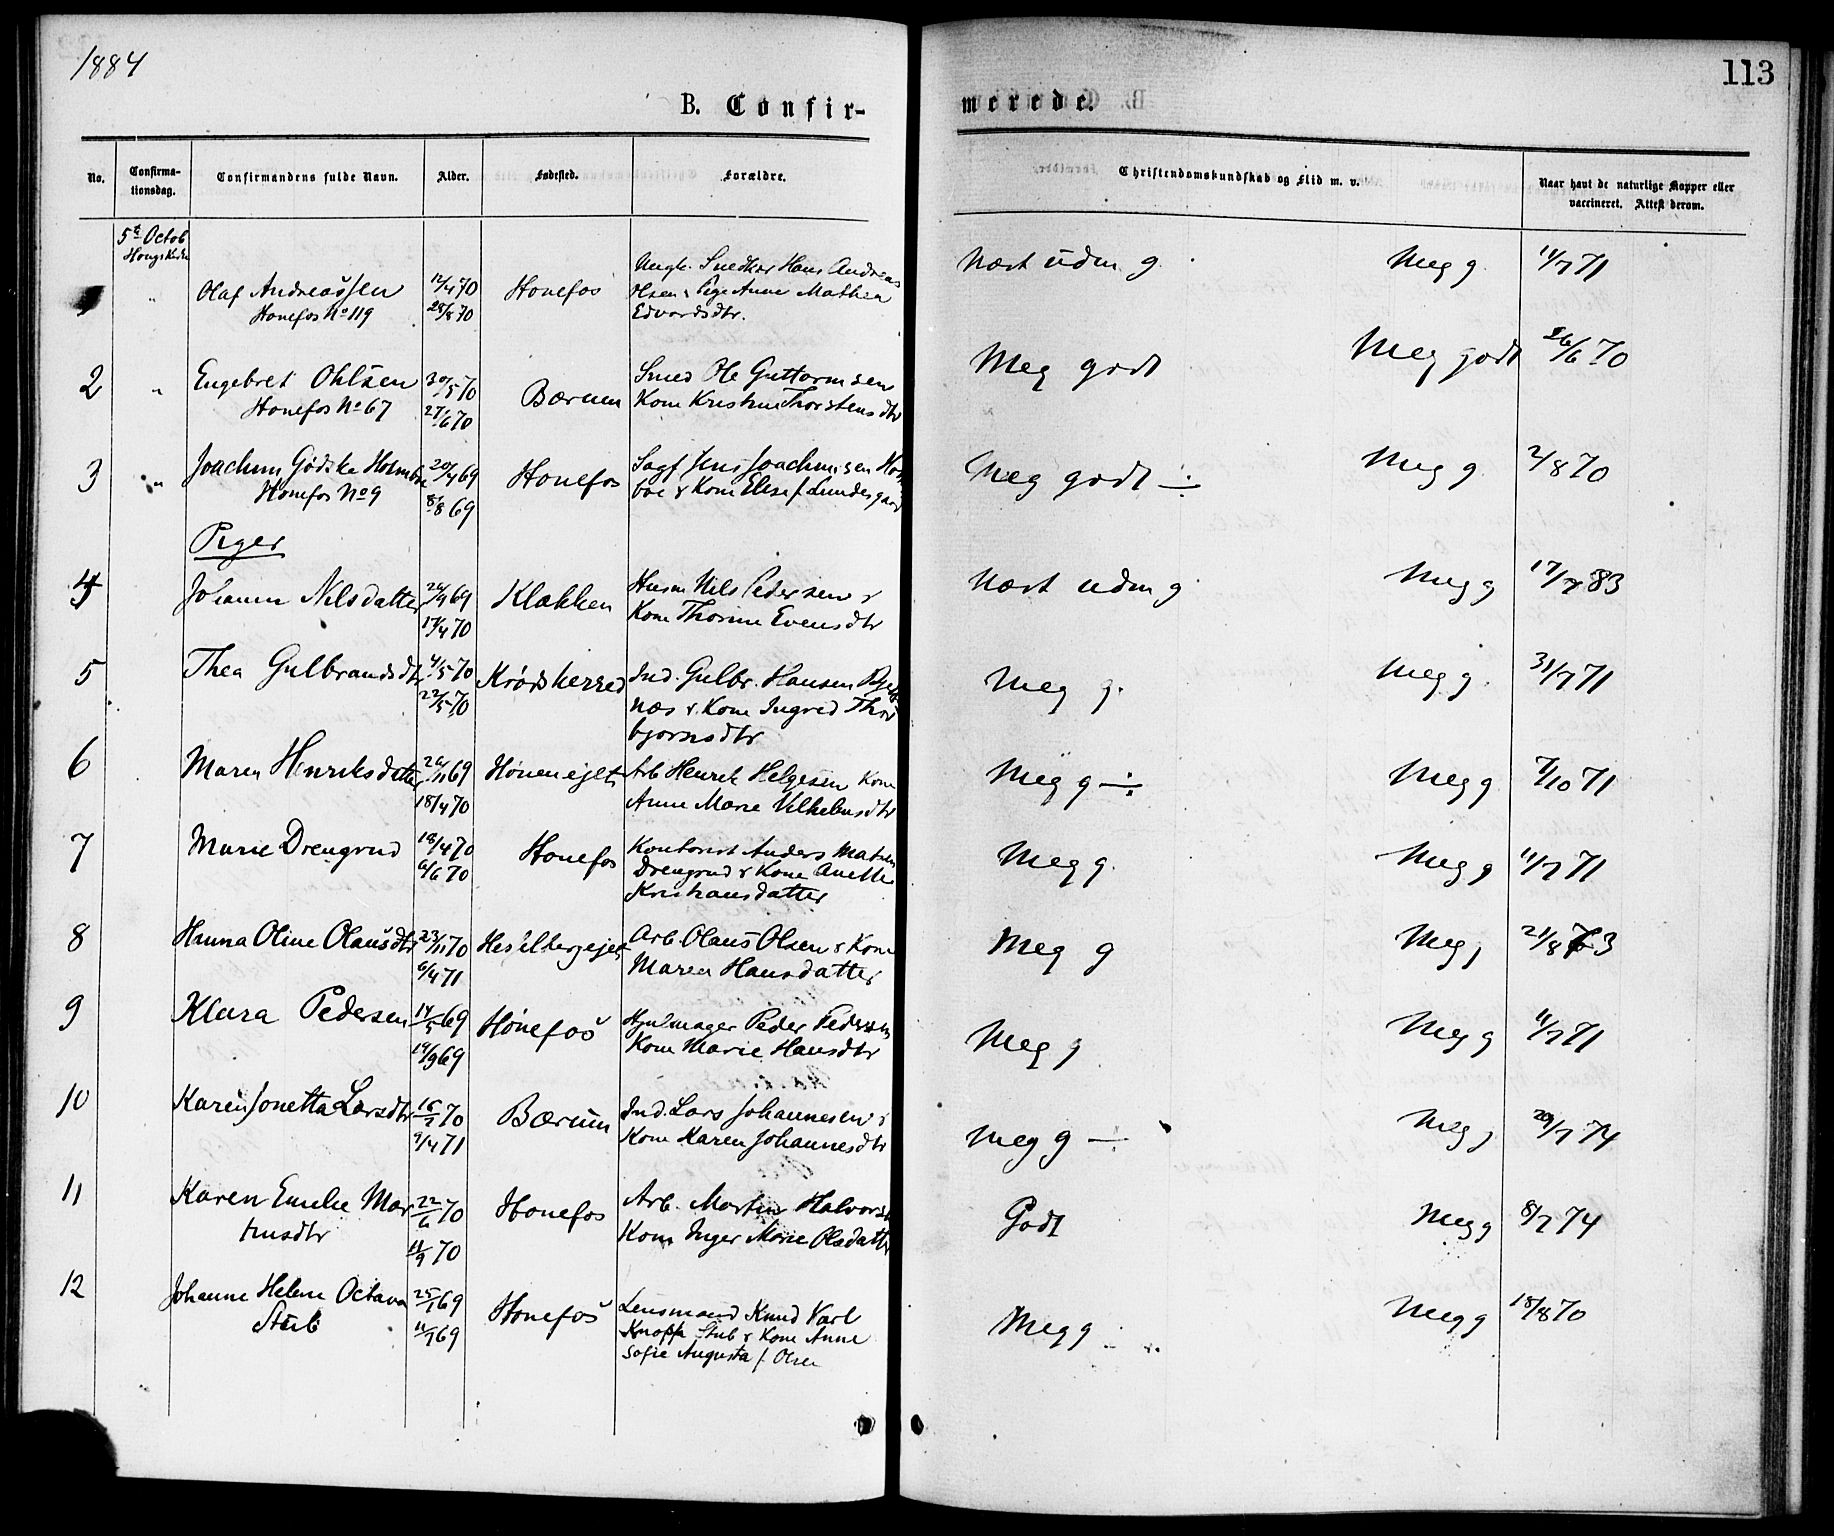 1884
113
B. Confir-
merede.
No.
Confirma-
tionsdag.
Confirmandens fulde Navn.
Alder.
Fødested.
Forældre.
Christendomskundskab og Flid m. v.
Naar havt de naturlige Kopper eller
vaccineret. Attest derom.
5te Octob
Hougs Kirke
" Olaf Andreassen 12/4 70 Honefos Snedker Hans Andreas Nært udm g. Meg g 11/7 71
Honefos No 119 28/8 70 Olsen & Pige Anne Mathea
Edvardsdtr.
2 " Engebret Ohlsen 30/5 70 Bærum Smed Ole Guttormsen Meg godt Meg godt 26/6 70
Honefos No 67 27/6 70 Kone Kristine Thorstensdtr
3 " Joachim Gødske Holmboe 20/4 69 Honefos Sagf Jens Joachimsen Holm Meg godt ÷ Meg g 2/8 70
Honefos No 9 8/8 69 boe & Kone Elise f. Lundesgaard
Piger
4 Johanne Nilsdatter 26/9 69 Klækken Husm Nils Pedersen & Nært udm g Meg g 17/7 83
17/4 70 Kone Thorine Evensdtr
5 Thea Gulbrandsdtr 4/5 70 Krødsherred Ind. Gulbr. Hansen Meg g. Meg g. 31/7 71
22/5 70 næs & Kone Ingred Thor
bjørnsdtr
6 Maren Henriksdatter 26/11 69 Hönenejet Arb Henrik Helgesen Kone Meg g ÷ Meg g 7/10 71
18/4 70 Anne Marie Vilhelmsdtr
7 Marie Drengrud 18/4 70 Honefos Kontorist Anders Meg g. Meg g 11/7 71
6/6 70 Drengrud & Kone Anette
Kristiansdatter
8 Hanna Oline Olausdtr 23/11 70 Arb Olaus Olsen & Kone Meg g Meg g 21/8 73
6/4 71 Maren Hansdatter
9 Klara Pedersen 14/5 69 Hönefos Hjulmager Peder Pedersen Meg g Meg g 11/7 71
19/9 69 Kone Marie Hansdtr
10 Karen Jonetta Larsdtr 16/2 70 Bærum Ind. Lars Johannesen & Meg g ÷ Meg g 20/7 74
9/4 71 Kone Karen Johannesdtr
11 Karen Emelie Mar 22/6 70 Honefos Arb. Martin Halvorsen Godt Meg g 8/7 74
tinsdtr 11/9 70 Kone Inger Marie Olsdatter
12 Johanne Helene Octava 25/1 69 Honefos Lensmand Knud Karl Meg g Meg g 18/8 70
Stub 11/7 69 Knoff Stub & Kone Anne
Sofie Augusta f. Olsen